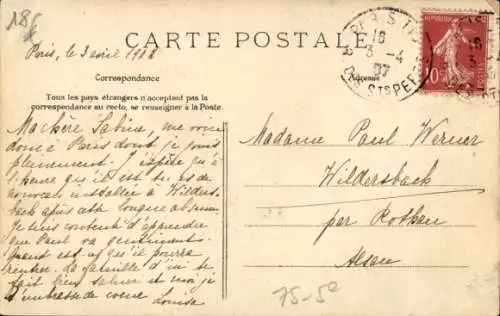 18f
Paris, le 3 avril 1908
CARTE POSTALE
Correspondance
Adresse
Tous les pays étrangers n'acceptent pas la
correspondance au recto, se renseigner à la Poste.
REPUBLIQUE
10
PARIS
16
3 -4
07
DES Sts PERES
Ma chère Sabine, me voici
donc à Paris dont je jouis
pleinement. J'espère qu'à
l'heure que il est tu es de
nouveau installée à Wilders-
bach après cette longue absence.
Je suis contente d'apprendre
que Paul va gentiment.
Quand est-ce qu'il pourra
rentrer. La famille d'ici te
fait bien saluer et moi je
t'embrasse de coeur Louisa
Madame Paul Werner
Wildersbach
par Rothau
Alsace
75-5e